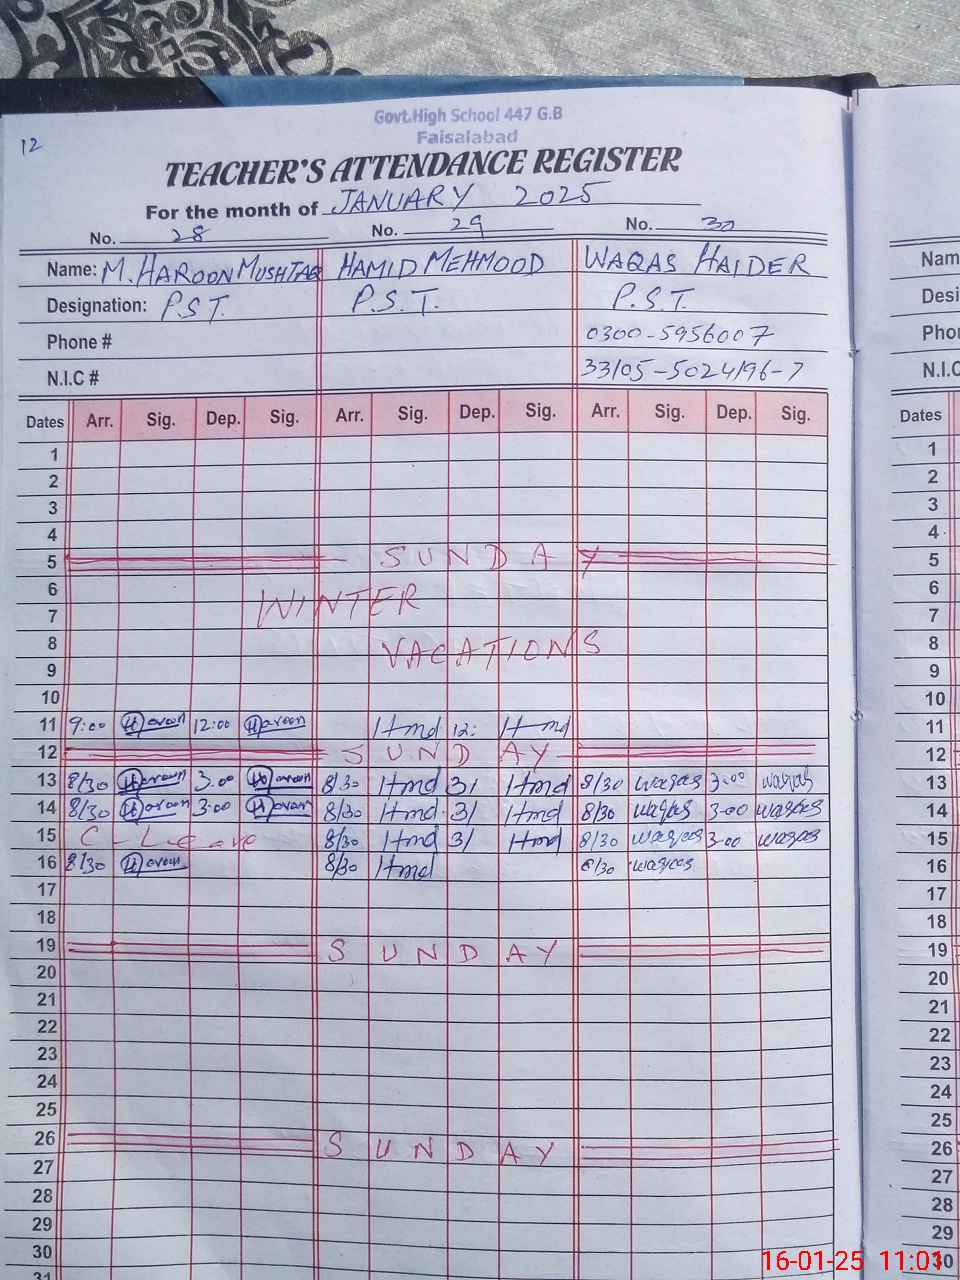 Govt.High School 447 G.B
Faisalabad
12
TEACHER'S ATTENDANCE REGISTER
For the month of JANUARY 2025
No. 28 No. 29 No. 30
Name: M. HAROON MUSHTAQ HAMID MEHMOOD WAQAS HAIDER
Designation: P.S.T. P.S.T. P.S.T.
Phone # 0300-5956007
N.I.C # 33105-5024196-7
Dates Arr. Sig. Dep. Sig. Arr. Sig. Dep. Sig. Arr. Sig. Dep. Sig.
1
2
3
4
5 SUNDAY
6 WINTER
7
8 VACATIONS
9
10
11 9:00 Haroon 12:00 Haroon Hmd 12: Hmd
12 SUNDAY
13 8/30 Haroon 3.00 Haroon 8/30 Hmd 3/ Hmd 8/30 waqas 3.00 waqas
14 8/30 Haroon 3.00 Haroon 8/30 Hmd 3/ Hmd 8/30 waqas 3.00 waqas
15 C-Leave 8/30 Hmd 3/ Hmd 8/30 waqas 3.00 waqas
16 8/30 Haroon 8/30 Hmd 8/30 waqas
17
18
19 SUNDAY
20
21
22
23
24
25
26 SUNDAY
27
28
29
30
31
Nam
Desi
Pho
N.I.C
Dates
1
2
3
4
5
6
7
8
9
10
11
12
13
14
15
16
17
18
19
20
21
22
23
24
25
26
27
28
29
30
16-01-25 11:01